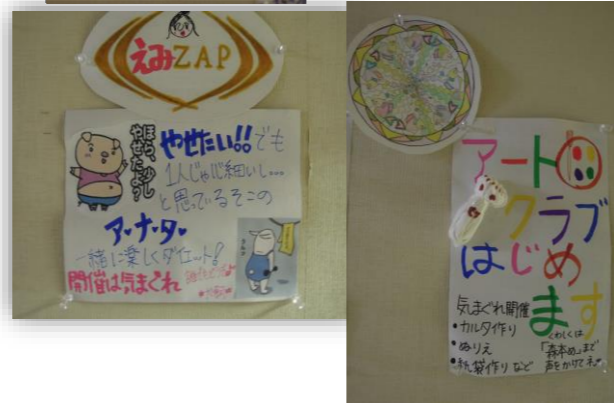 えみZAP
ほら、少し
やせたよ?
やせたい!!でも
1人じゃ心細いし…
と思っているそこの
ア・ナ・タ・
一緒に楽しくダイエット!
開催は気まぐれ
アート
クラブ
はじめ
ます
気まぐれ開催
・カルタ作り
・ぬりえ
・紙袋作り など
くわしくは
「森本め」まで
声をかけてネ